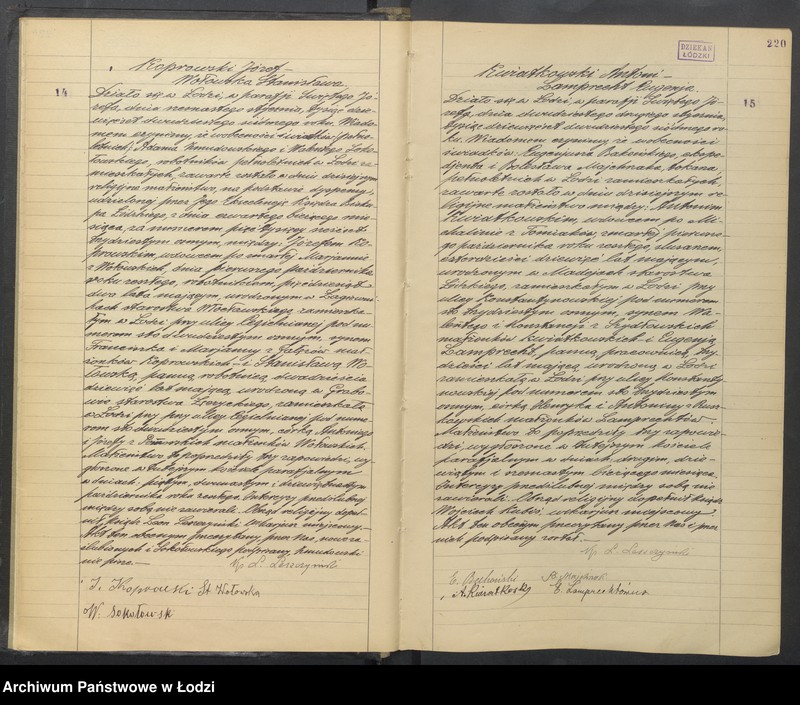 14
Koprowski Józef –
Wołowska Stanisława
Działo się w Łodzi, w parafji Świętego Jó-
zefa, dnia szesnastego stycznia, tysiąc dzie-
więćset dwudziestego siódmego roku. Wiado-
mem czynimy, iż w obecności świadków pełno-
letnich, Adama Zmudowskiego i Walentego Soko-
łowskiego, robotników pełnoletnich w Łodzi za-
mieszkałych, zawarte zostało w dniu dzisiejszym
religijne małżeństwo, na podstawie dyspensy,
udzielonej przez Jego Ekscelencję Księdza Bisku-
pa Łódzkiego, z dnia czwartego bieżącego mie-
siąca, za numerem pięć tysięcy sześćset
trzydziestym ósmym, między: Józefem Ko-
prowskim, wdowcem po zmarłej Marjannie
z Wołowskich, dnia pierwszego października
roku zeszłego, robotnikiem, pięćdziesiąt
dwa lata mającym, urodzonym w
starostwa Włocławskiego, zamiesz-
łym w Łodzi przy ulicy Cegielnianej pod nu-
merem sto dwudziestym ósmym, synem
Franciszka i Marjanny z małż-
żonków Koprowskich – i Stanisławą Wo-
łowską, panną robotnicą, dwadzieścia
dziewięć lat mającą, urodzoną w Grabo-
wie starostwa Łęczyckiego, zamieszkałą
w Łodzi przy ulicy Cegielnianej pod nume-
rem sto dwudziestym ósmym, córką Antoniego
i Józefy z małżonków Wołowskich.
Małżeństwo to poprzedziły trzy zapowiedzi, wy-
głoszone w tutejszym kościele parafjalnym
w dniach: piątym, dwunastym i dziewiętnastym
października roku zeszłego. Intercyzy przedślubnej
między sobą nie zawarli. Obrząd religijny dopeł-
nił Ksiądz Leon Leszczyński Wikarjusz miejscowy.–
Akt ten obecnym przeczytany przez Nas, nowoza-
ślubionych i Sokołowskiego podpisany, Zmudowski
nie pisze.–
Ks. L. Leszczyński
J. Koprowski St. Wołowska
W. Sokołowski
DZIEKAN
ŁÓDZKI
220
15
Kwiatkowski Antoni –
Lamprecht Eugenja
Działo się w Łodzi, w parafji Świętego Jó-
zefa, dnia dwudziestego drugiego stycznia,
tysiąc dziewięćset dwudziestego siódmego ro-
ku. Wiadomem czynimy, iż w obecności
świadków, Eugenjusza ekspe-
djenta i Bolesława Majchrzaka, tokarza,
pełnoletnich w Łodzi zamieszkałych,
zawarte zostało w dniu dzisiejszym re-
ligijne małżeństwo między: Antonim
Kwiatkowskim, wdowcem po Mi-
chalinie z Tomiaków, zmarłej pierwsze-
go października roku zeszłego, murarzem,
czterdzieści dziewięć lat mającym,
urodzonym w Madajach starostwa
zamieszkałym w Łodzi przy
ulicy Konstantynowskiej pod numerem
sto trzydziestym ósmym, synem Wa-
lentego i Konstancji z Szydłowskich
małżonków Kwiatkowskich – i Eugenją
Lamprecht, panną pracownicą, trzy-
dzieści lat mającą, urodzoną w Łodzi
zamieszkałą w Łodzi przy ulicy Konstanty-
nowskiej pod numerem sto trzydziestym
ósmym, córką Henryka i Antoniny z
małżonków Lamprechtów.
Małżeństwo to poprzedziły trzy zapowie-
dzi, wygłoszone w tutejszym kościele
parafjalnym w dniach: drugim, dzie-
wiątym i szesnastym bieżącego miesiąca.
Intercyzy przedślubnej między sobą nie
zawierali. Obrząd religijny dopełnił Ksiądz
Wojciech wikarjusz miejscowy.
Akt ten obecnym przeczytany przez Nas i przez
nich podpisany został.–
Ks. L. Leszczyński
A. Kwiatkowski E. Lamprechtówna
Archiwum Państwowe w Łodzi